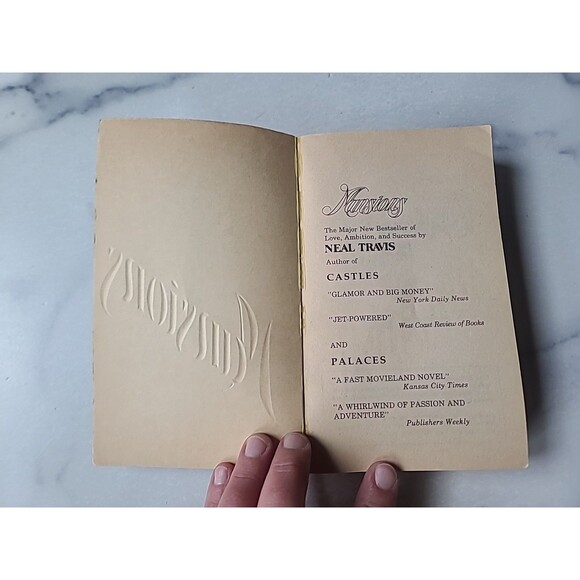 Mansions
Mansions
The Major New Bestseller of
Love, Ambition, and Success by
NEAL TRAVIS
Author of
CASTLES
"GLAMOR AND BIG MONEY"
New York Daily News
"JET-POWERED"
West Coast Review of Books
AND
PALACES
"A FAST MOVIELAND NOVEL"
Kansas City Times
"A WHIRLWIND OF PASSION AND
ADVENTURE"
Publishers Weekly